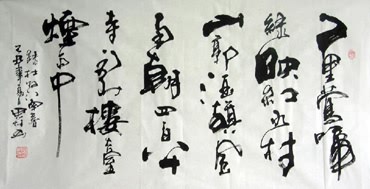 千里鶯啼
綠映紅水村
山郭酒旗風
南朝四百八十
寺多少樓臺
煙雨中
錄杜牧江南春